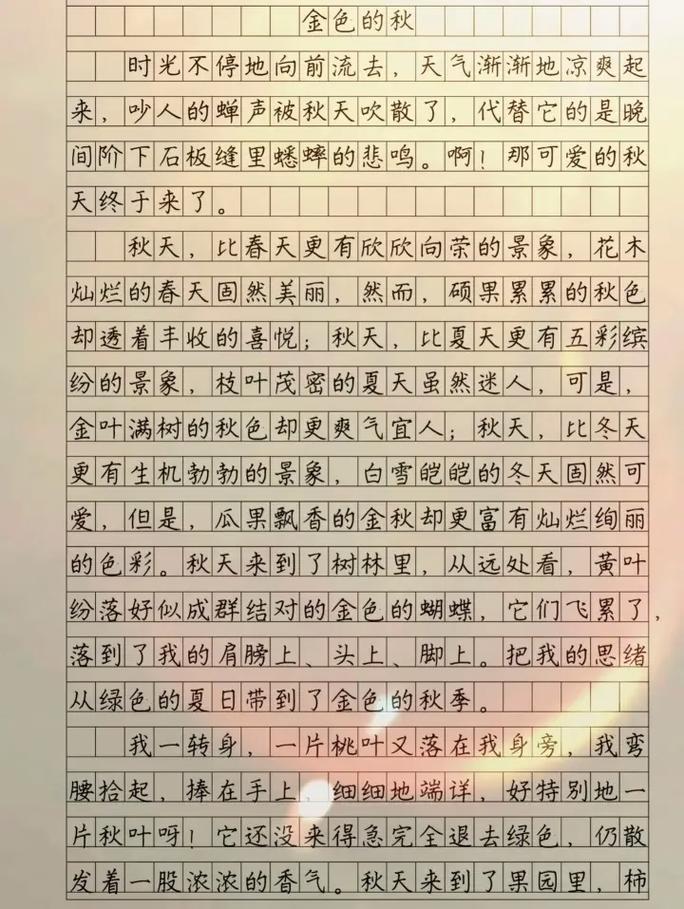 金色的秋
时光不停地向前流去，天气渐渐地凉爽起
来，吵人的蝉声被秋天吹散了，代替它的是晚
间阶下石板缝里蟋蟀的悲鸣。啊！那可爱的秋
天终于来了。
秋天，比春天更有欣欣向荣的景象，花木
灿烂的春天固然美丽，然而，硕果累累的秋色
却透着丰收的喜悦；秋天，比夏天更有五彩缤
纷的景象，枝叶茂密的夏天虽然迷人，可是，
金叶满树的秋色却更爽气宜人；秋天，比冬天
更有生机勃勃的景象，白雪皑皑的冬天固然可
爱，但是，瓜果飘香的金秋却更富有灿烂绚丽
的色彩。秋天来到了树林里，从远处看，黄叶
纷落好似成群结对的金色的蝴蝶，它们飞累了，
落到了我的肩膀上、头上、脚上。把我的思绪
从绿色的夏日带到了金色的秋季。
我一转身，一片桃叶又落在我身旁，我弯
腰拾起，捧在手上，细细地端详，好特别地一
片秋叶呀！它还没来得急完全退去绿色，仍散
发着一股浓浓的香气。秋天来到了果园里，柿